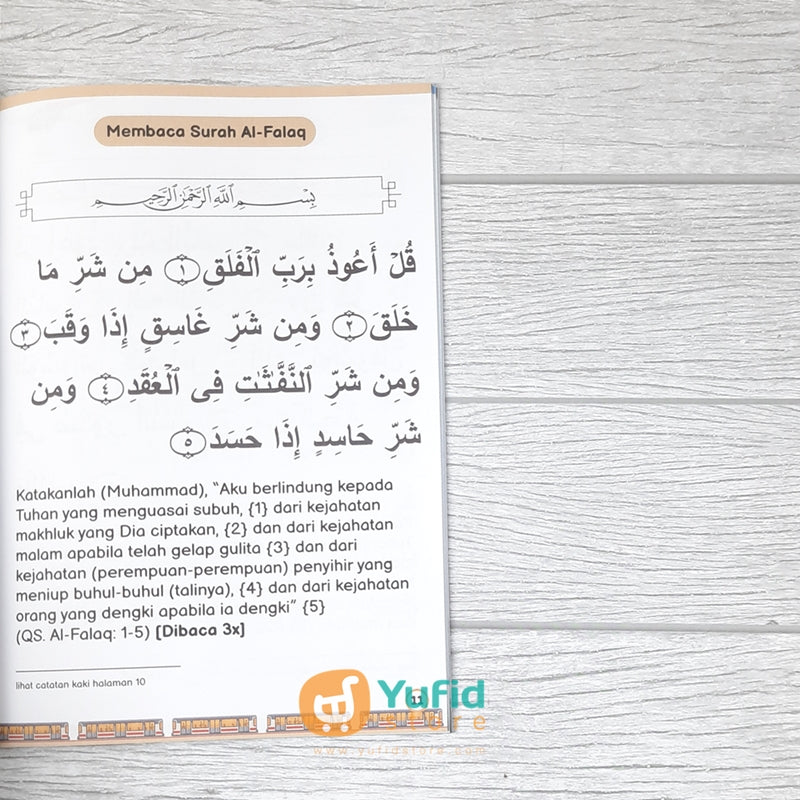 Membaca Surah Al-Falaq
بِسْمِ ٱللَّهِ ٱلرَّحْمَٰنِ ٱلرَّحِيمِ
قُلْ أَعُوذُ بِرَبِّ ٱلْفَلَقِ ١ مِن شَرِّ مَا
خَلَقَ ٢ وَمِن شَرِّ غَاسِقٍ إِذَا وَقَبَ ٣
وَمِن شَرِّ ٱلنَّفَّـٰثَـٰتِ فِى ٱلْعُقَدِ ٤ وَمِن
شَرِّ حَاسِدٍ إِذَا حَسَدَ ٥
Katakanlah (Muhammad), “Aku berlindung kepada
Tuhan yang menguasai subuh, {1} dari kejahatan
makhluk yang Dia ciptakan, {2} dan dari kejahatan
malam apabila telah gelap gulita {3} dan dari
kejahatan (perempuan-perempuan) penyihir yang
meniup buhul-buhul (talinya), {4} dan dari kejahatan
orang yang dengki apabila ia dengki” {5}
(QS. Al-Falaq: 1-5) [Dibaca 3x]
lihat catatan kaki halaman 10
11
Yufid
store
www.yufidstore.com